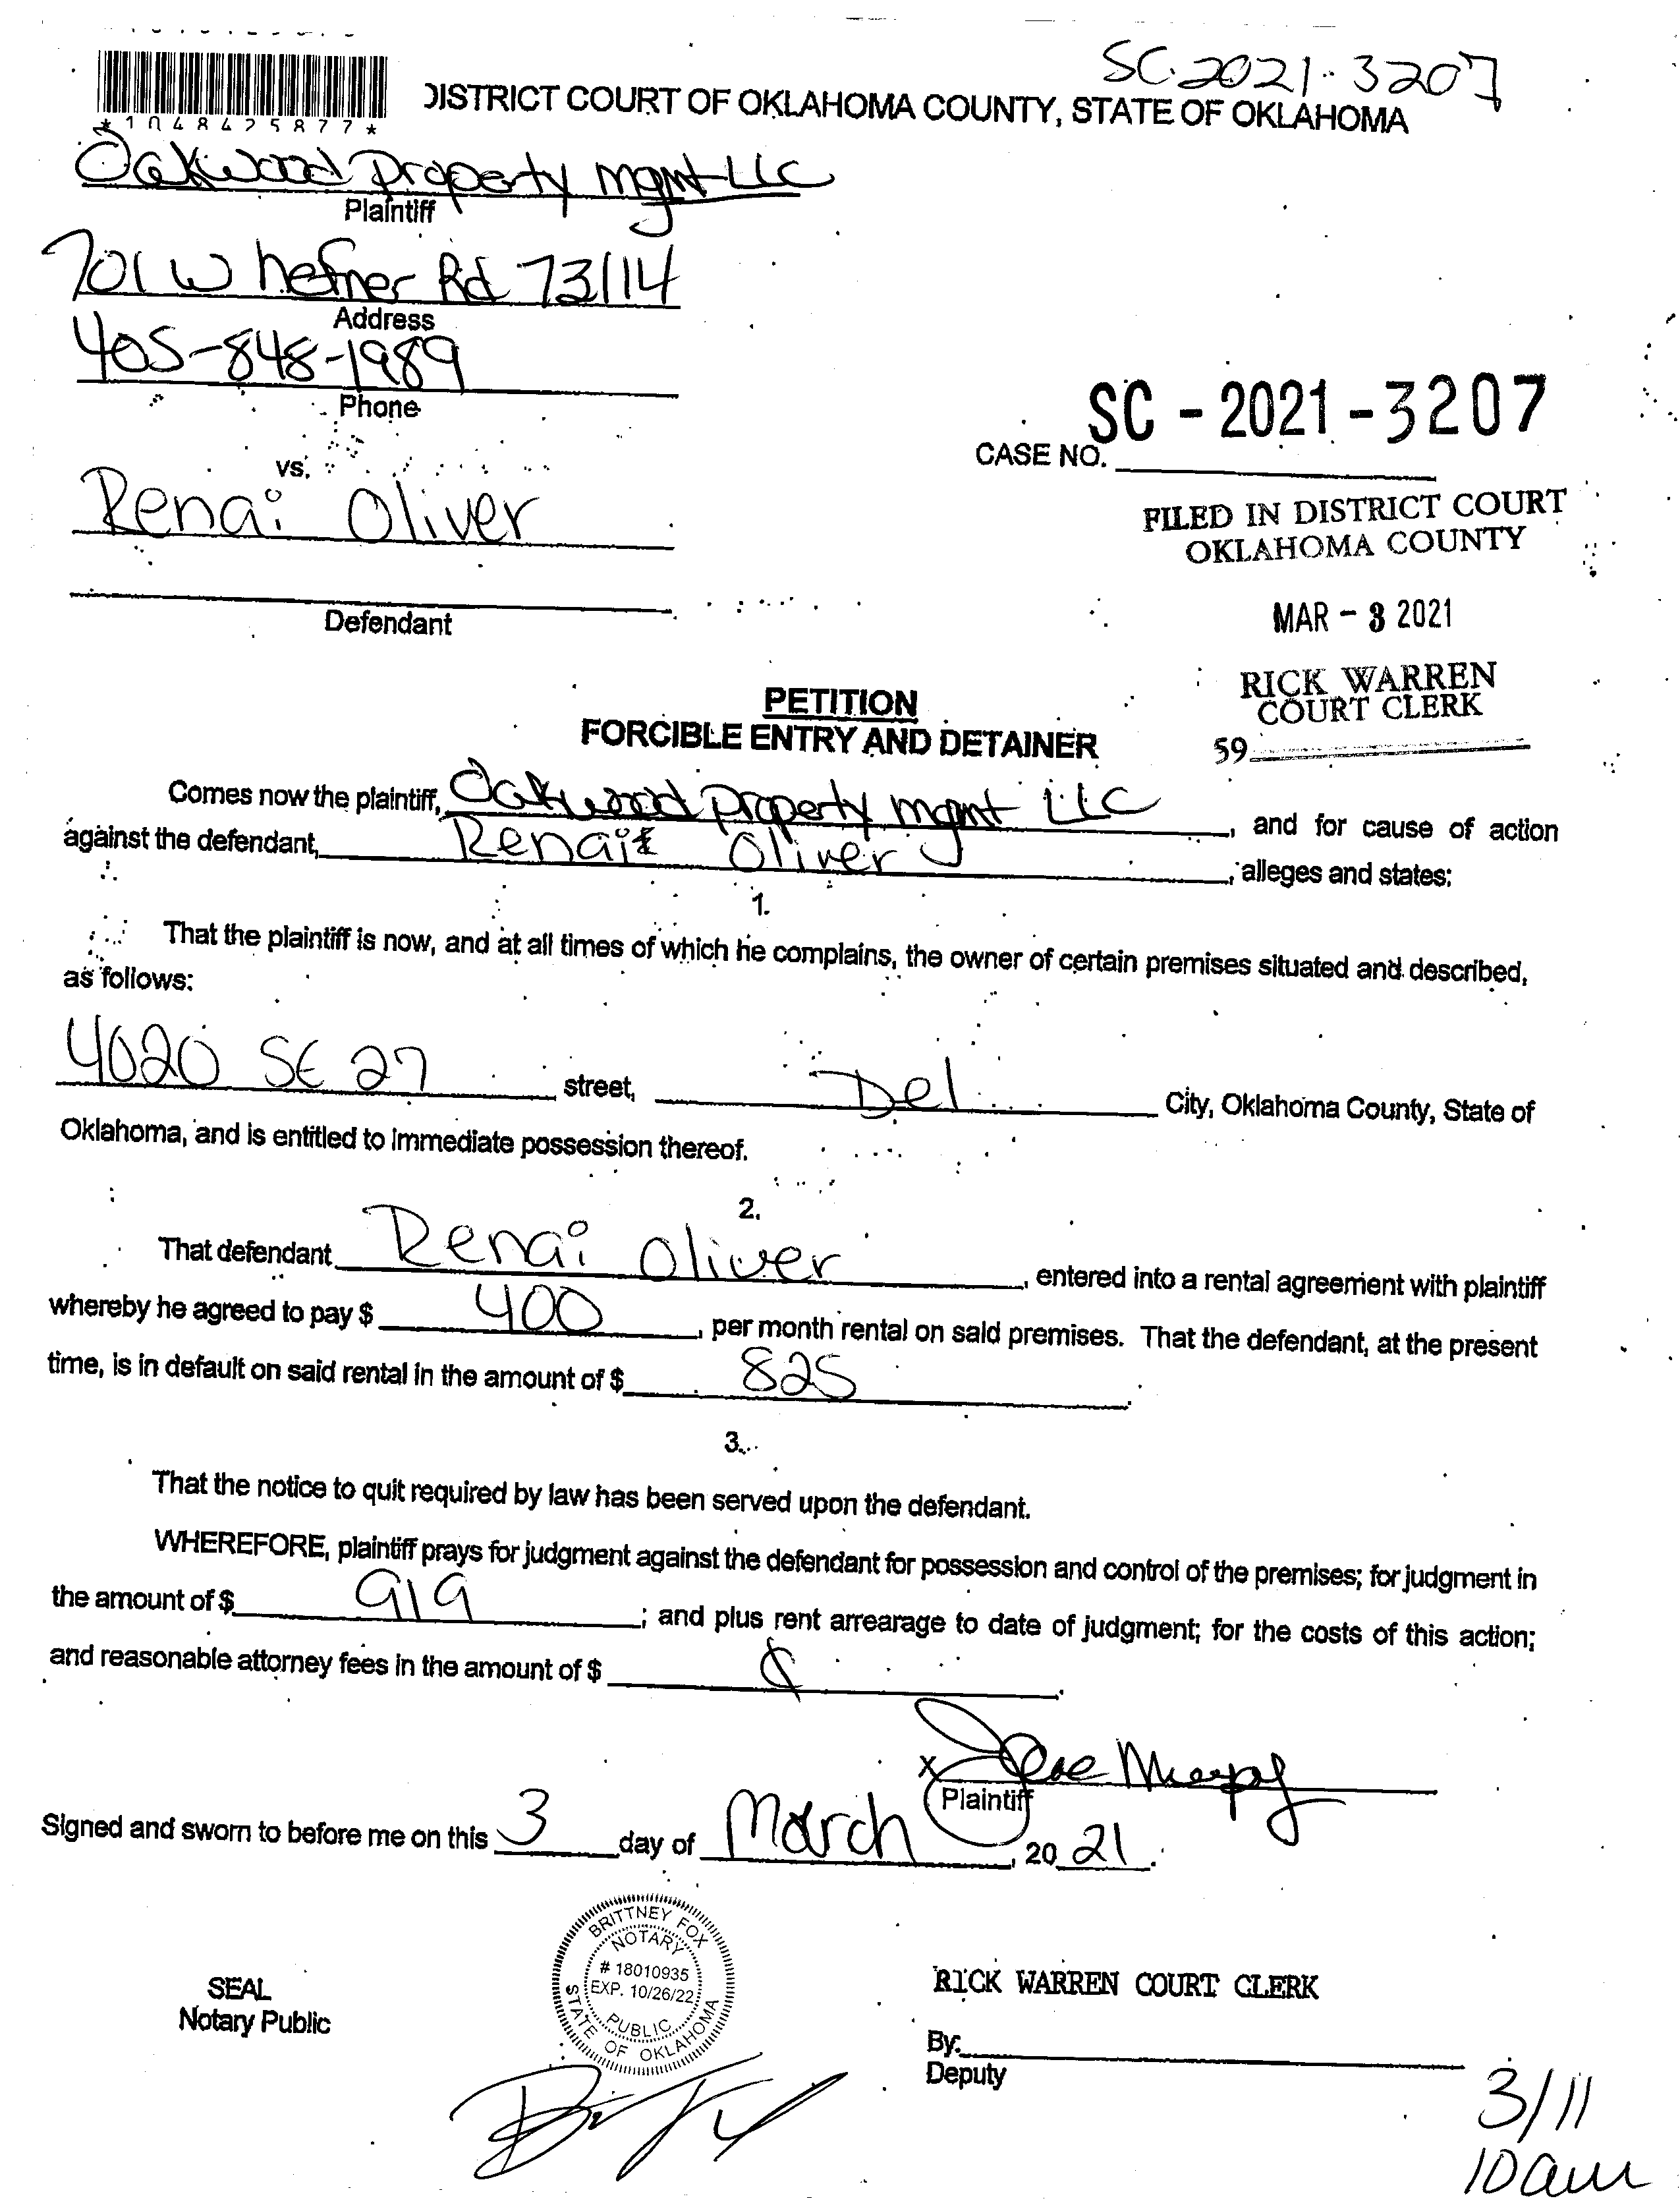 SC-2021-3207
*1048425877*
DISTRICT COURT OF OKLAHOMA COUNTY, STATE OF OKLAHOMA
Oakwood Property mgmt LLC
Plaintiff
701 W hefner Rd 73114
Address
405-848-1989
Phone
SC - 2021 - 3207
CASE NO.
vs.
Renai Oliver
FILED IN DISTRICT COURT
OKLAHOMA COUNTY
Defendant
MAR - 3 2021
RICK WARREN
COURT CLERK
59
PETITION
FORCIBLE ENTRY AND DETAINER
Comes now the plaintiff, Oakwood property mgmt LLC, and for cause of action
against the defendant, Renai Oliver, alleges and states:
1.
That the plaintiff is now, and at all times of which he complains, the owner of certain premises situated and described,
as follows:
4020 SE 27 street, Del City, Oklahoma County, State of
Oklahoma, and is entitled to immediate possession thereof.
2.
That defendant Renai Oliver, entered into a rental agreement with plaintiff
whereby he agreed to pay $ 400, per month rental on said premises. That the defendant, at the present
time, is in default on said rental in the amount of $ 825.
3.
That the notice to quit required by law has been served upon the defendant.
WHEREFORE, plaintiff prays for judgment against the defendant for possession and control of the premises; for judgment in
the amount of $ 919; and plus rent arrearage to date of judgment; for the costs of this action;
and reasonable attorney fees in the amount of $
X
Plaintiff
Signed and sworn to before me on this 3 day of March, 2021.
BRITTNEY FOX
NOTARY
# 18010935
EXP. 10/26/22
PUBLIC
STATE OF OKLAHOMA
SEAL
Notary Public
RICK WARREN COURT CLERK
By:
Deputy
3/11
10am